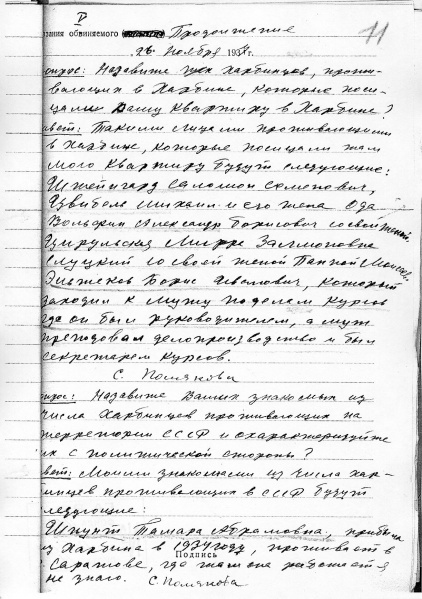 V
11
зания обвиняемого Продолжение
26 ноября 193 г.
опрос: Назовите тех харбинцев, прожи-
вающих в Харбине, которые посе-
щали Вашу квартиру в Харбине?
вет: Такими лицами проживающими
в Харбине, которые посещали там
мою квартиру будут следующие:
Соломон Семенович,
Михаил и его жена Ода
Вольфин Александр Борисович со своей женой
Цирульская Мирра Залмоновна
Слуцкий со своей женой
Борис Львович, который
заходил к мужу по делам курсов
где он был руководителем, а муж
преподавал делопроизводство и был
секретарем курсов.
С. Полякова
прос: Назовите Ваших знакомых из
числа харбинцев проживающих на
территории СССР и охарактеризуйте
их с политической стороны?
вет: Моими знакомыми из числа хар-
бинцев проживающих в СССР будут
следующие:
Шпунт Тамара Абрамовна, прибыла
из Харбина в 1934 году, проживает в
Подпись
Саратове, где там она работает я
не знаю. С. Полякова